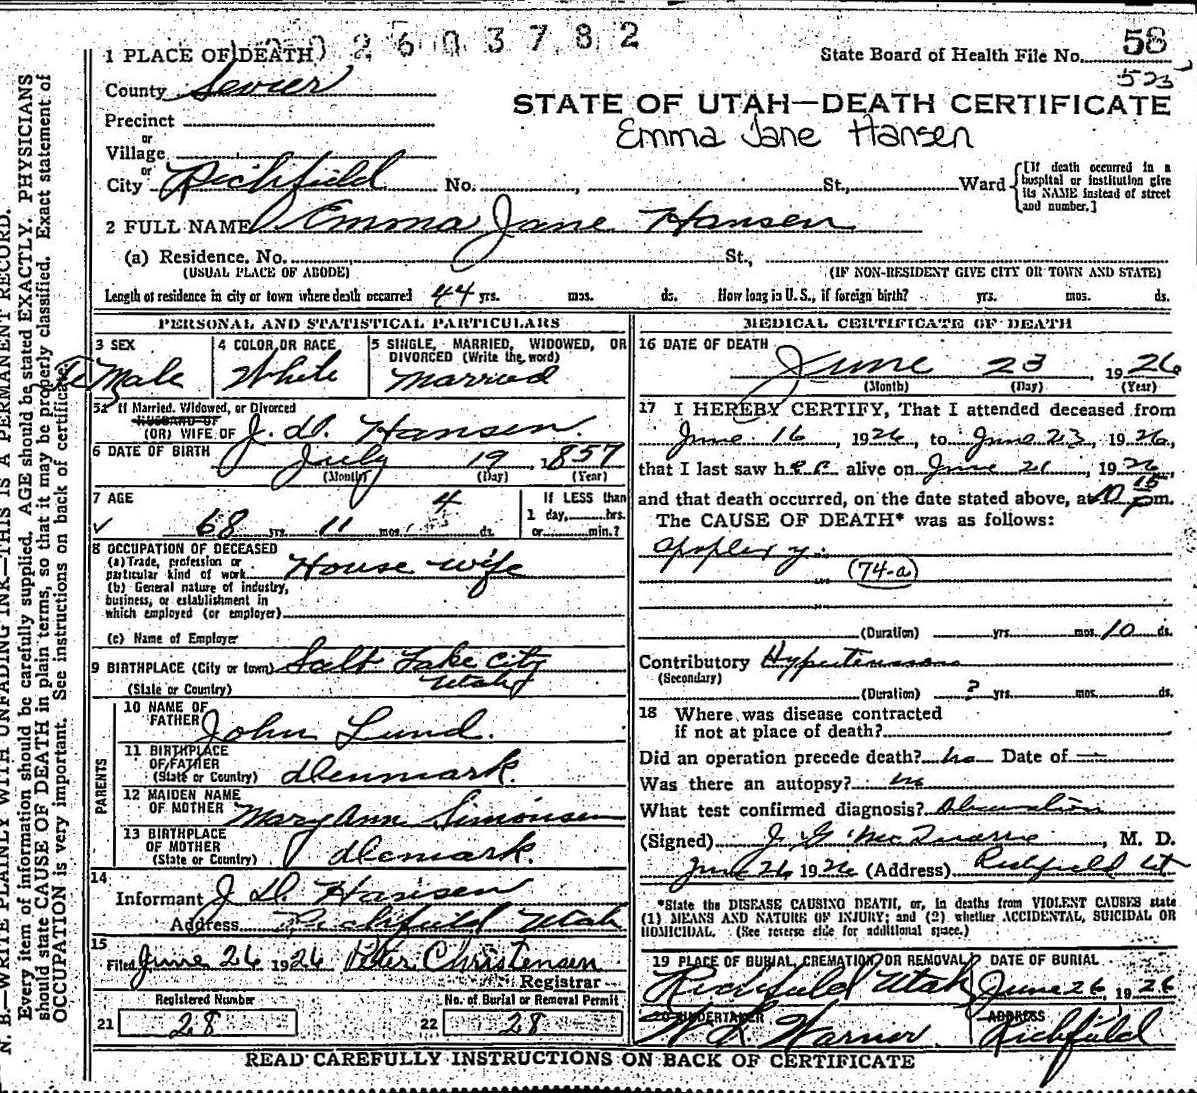 2603782
1 PLACE OF DEATH
State Board of Health File No. 58
523
County Sevier
STATE OF UTAH—DEATH CERTIFICATE
Precinct
Emma Jane Hansen
or
Village
or
City Richfield No. , St., Ward
[If death occurred in a
hospital or institution give
its NAME instead of street
and number.]
2 FULL NAME Emma Jane Hansen
(a) Residence. No. St.,
(USUAL PLACE OF ABODE) (IF NON-RESIDENT GIVE CITY OR TOWN AND STATE)
Length of residence in city or town where death occurred 44 yrs. mos. ds. How long in U. S., if foreign birth? yrs. mos. ds.
PERSONAL AND STATISTICAL PARTICULARS
3 SEX
FeMale
4 COLOR OR RACE
White
5 SINGLE, MARRIED, WIDOWED, OR
DIVORCED (Write the word)
Married
5a If Married, Widowed, or Divorced
HUSBAND OF
(OR) WIFE OF J. D. Hansen.
6 DATE OF BIRTH July 19, 1857
(Month) (Day) (Year)
7 AGE
68 yrs. 11 mos. 4 ds.
If LESS than
1 day, hrs.
or min.?
8 OCCUPATION OF DECEASED
(a) Trade, profession or
particular kind of work House wife
(b) General nature of industry,
business, or establishment in
which employed (or employer)
(c) Name of Employer
9 BIRTHPLACE (City or town) Salt Lake City
Utah
(State or Country)
PARENTS
10 NAME OF
FATHER John Lund.
11 BIRTHPLACE
OF FATHER
(State or Country) Denmark.
12 MAIDEN NAME
OF MOTHER Mary Ann Simonsen
13 BIRTHPLACE
OF MOTHER
(State or Country) Demark.
14
Informant J D. Hansen
Address Richfield Utah
15
Filed June 26 1926 Peter Christensen
Registrar
Registered Number
21 28
No. of Burial or Removal Permit
22 28
MEDICAL CERTIFICATE OF DEATH
16 DATE OF DEATH
June 23 1926
(Month) (Day) (Year)
17 I HEREBY CERTIFY, That I attended deceased from
June 16, 1926, to June 23, 1926,
that I last saw her alive on June 21, 1926,
and that death occurred, on the date stated above, at 10 15 p m.
The CAUSE OF DEATH* was as follows:
Apoplexy.
(74-a)
(Duration) yrs. mos. 10 ds.
Contributory Hypertension
(Secondary)
(Duration) ? yrs. mos. ds.
18 Where was disease contracted
if not at place of death?
Did an operation precede death? no Date of —
Was there an autopsy? no
What test confirmed diagnosis? Observation
(Signed) J. G. McQuarrie, M. D.
June 26 1926 (Address) Richfield Ut
*State the DISEASE CAUSING DEATH, or, in deaths from VIOLENT CAUSES state
(1) MEANS AND NATURE OF INJURY; and (2) whether ACCIDENTAL, SUICIDAL OR
HOMICIDAL. (See reverse side for additional space.)
19 PLACE OF BURIAL, CREMATION OR REMOVAL
Richfield Utah
DATE OF BURIAL
June 26, 1926
20 UNDERTAKER
Warner
ADDRESS
Richfield
READ CAREFULLY INSTRUCTIONS ON BACK OF CERTIFICATE
N. B.—WRITE PLAINLY WITH UNFADING INK—THIS IS A PERMANENT RECORD.
Every item of information should be carefully supplied. AGE should be stated EXACTLY. PHYSICIANS
should state CAUSE OF DEATH in plain terms, so that it may be properly classified. Exact statement of
OCCUPATION is very important. See instructions on back of certificate.